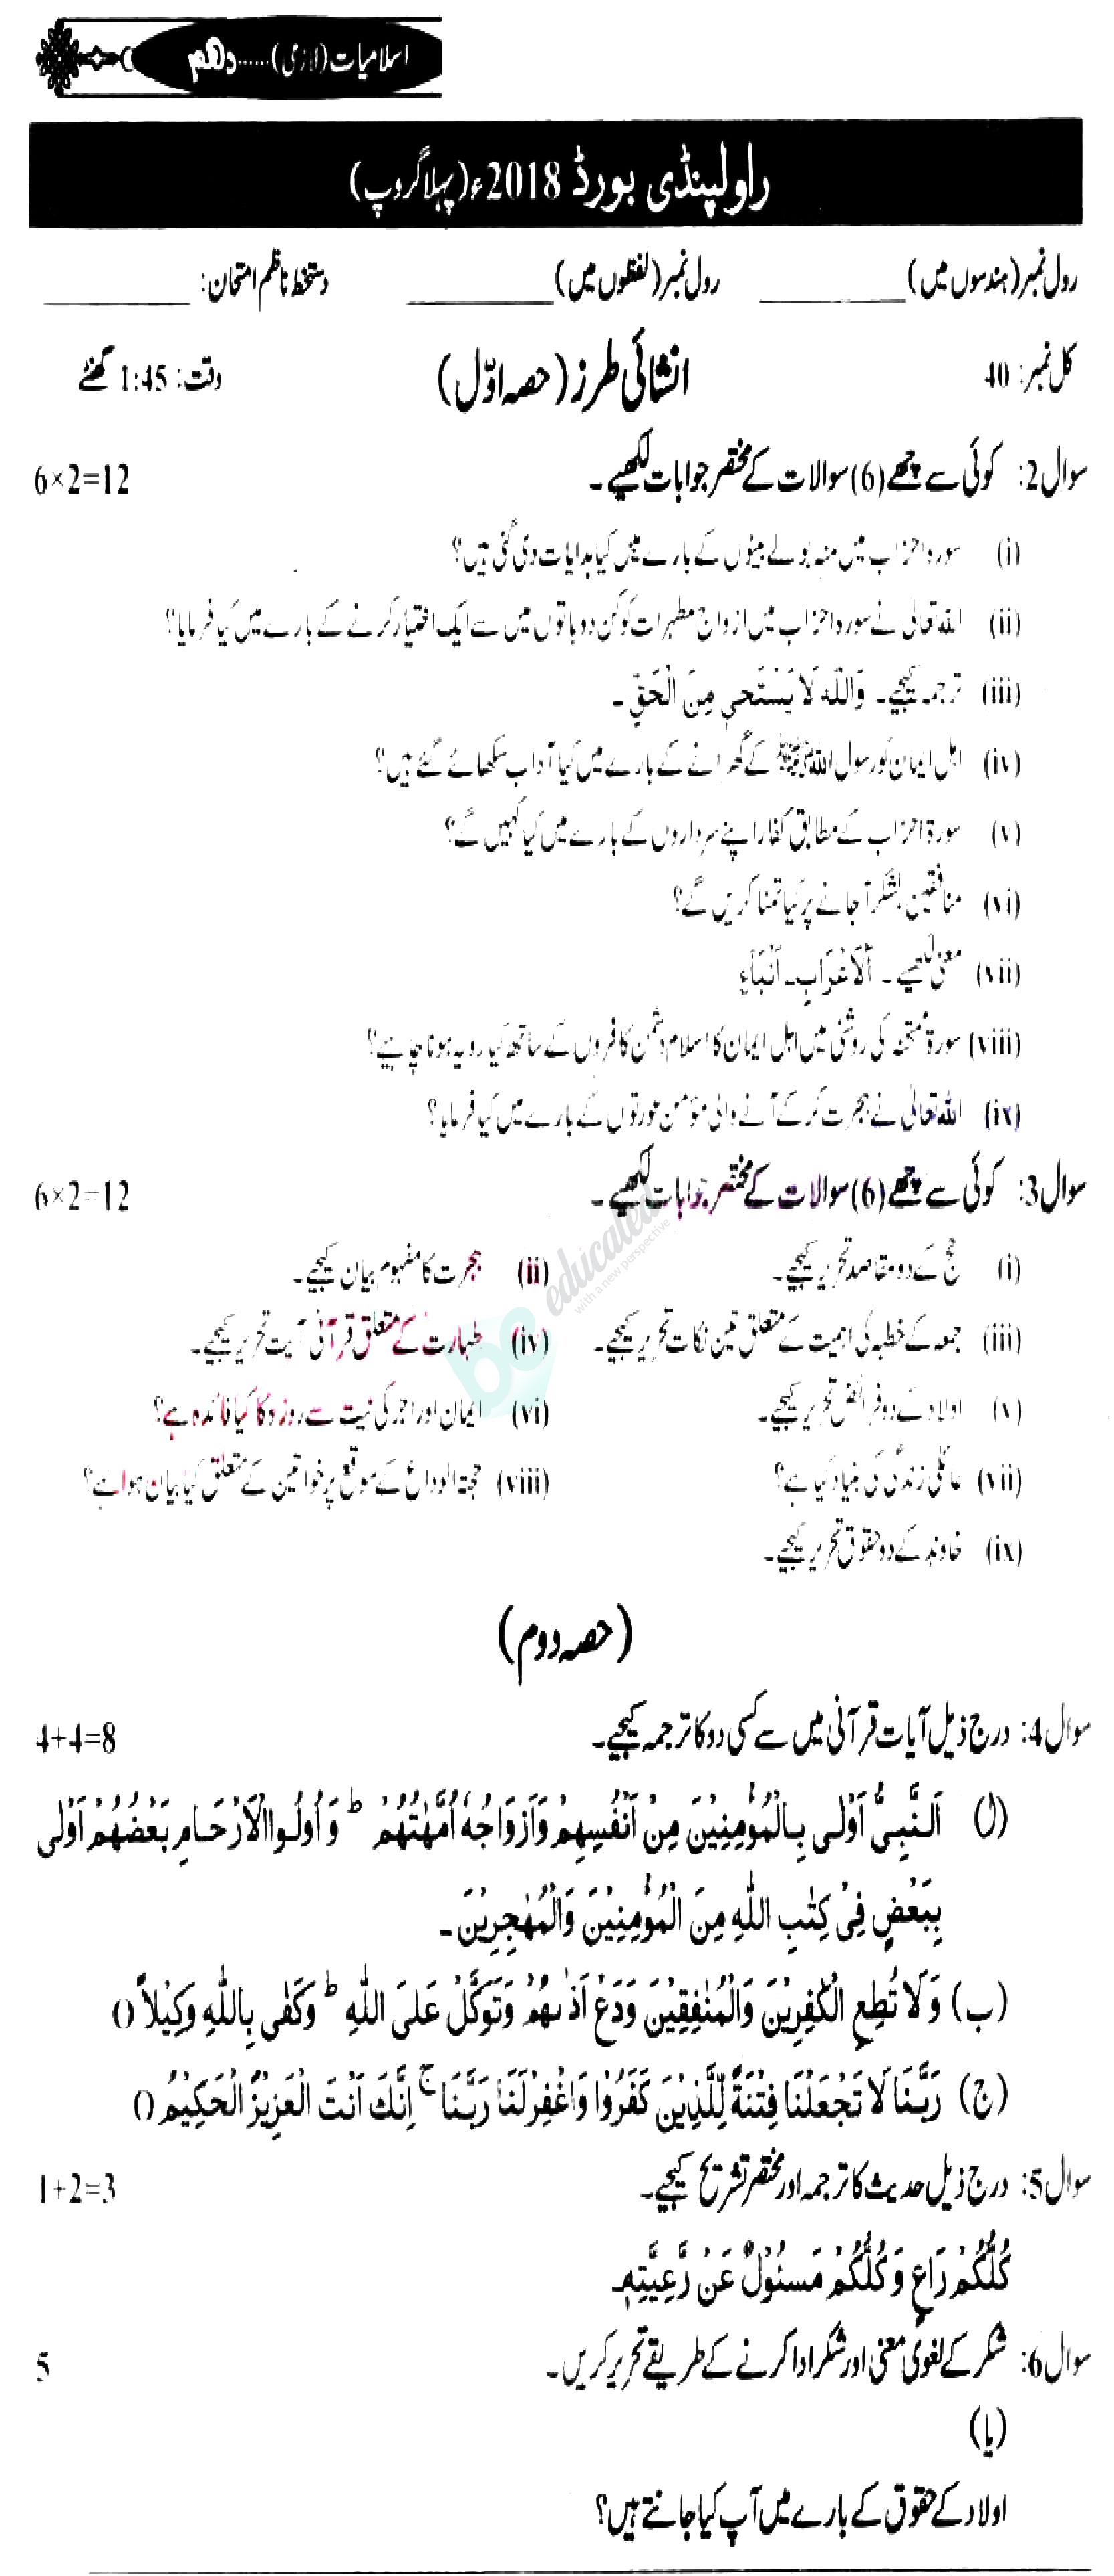 اسلامیات (لازمی)......دہم
راولپنڈی بورڈ 2018ء (پہلا گروپ)
رول نمبر (ہندسوں میں) __________ رول نمبر (لفظوں میں) __________ دستخط ناظم امتحان: __________
کل نمبر: 40 انشائی طرز (حصہ اوّل) وقت: 1:45 گھنٹے
سوال 2: کوئی سے چھے (6) سوالات کے مختصر جوابات لکھیے۔ 6×2=12
(i) سورہ احزاب میں منہ بولے بیٹوں کے بارے میں کیا ہدایات دی گئی ہیں؟
(ii) اللہ تعالیٰ نے سورہ احزاب میں ازواج مطہرات کو کن دو باتوں میں سے ایک اختیار کرنے کے بارے میں کیا فرمایا؟
(iii) ترجمہ کیجیے۔ وَاللّٰهُ لَا یَسْتَحْیٖ مِنَ الْحَقِّ۔
(iv) اہل ایمان کو رسول اللہ ﷺ کے گھرانے کے بارے میں کیا آداب سکھائے گئے ہیں؟
(v) سورۃ احزاب کے مطابق کفار اپنے سرداروں کے بارے میں کیا کہیں گے؟
(vi) منافقین لشکر آ جانے پر کیا تمنا کریں گے؟
(vii) معنی لکھیے۔ اَلْاَعْرَابِ۔ اَنْۢبَآءِ
(viii) سورۃ ممتحنہ کی روشنی میں اہل ایمان کا اسلام دشمن کافروں کے ساتھ کیا رویہ ہونا چاہیے؟
(ix) اللہ تعالیٰ نے ہجرت کر کے آنے والی مؤمن عورتوں کے بارے میں کیا فرمایا؟
سوال 3: کوئی سے چھے (6) سوالات کے مختصر جوابات لکھیے۔ 6×2=12
(i) حج کے دو مقاصد تحریر کیجیے۔ (ii) ہجرت کا مفہوم بیان کیجیے۔
(iii) جمعہ کے خطبہ کی اہمیت کے متعلق تین نکات تحریر کیجیے۔ (iv) طہارت کے متعلق قرآنی آیت تحریر کیجیے۔
(v) اولاد کے دو فرائض تحریر کیجیے۔ (vi) ایمان اور اجر کی نیت سے روزہ کا کیا فائدہ ہے؟
(vii) عائلی زندگی کی بنیاد کیا ہے؟ (viii) حجۃ الوداع کے موقع پر خواتین کے متعلق کیا بیان ہوا ہے؟
(ix) خاوند کے دو حقوق تحریر کیجیے۔
be educated
with a new perspective
(حصہ دوم)
سوال 4: درج ذیل آیات قرآنی میں سے کسی دو کا ترجمہ کیجیے۔ 4+4=8
(ا) اَلنَّبِیُّ اَوْلٰی بِالْمُؤْمِنِیْنَ مِنْ اَنْفُسِهِمْ وَاَزْوَاجُهٗ اُمَّهٰتُهُمْ ط وَاُولُوا الْاَرْحَامِ بَعْضُهُمْ اَوْلٰی
بِبَعْضٍ فِیْ کِتٰبِ اللّٰهِ مِنَ الْمُؤْمِنِیْنَ وَالْمُهٰجِرِیْنَ۔
(ب) وَلَا تُطِعِ الْکٰفِرِیْنَ وَالْمُنٰفِقِیْنَ وَدَعْ اَذٰىهُمْ وَتَوَکَّلْ عَلَی اللّٰهِ ط وَکَفٰی بِاللّٰهِ وَکِیْلًا ()
(ج) رَبَّنَا لَا تَجْعَلْنَا فِتْنَةً لِّلَّذِیْنَ کَفَرُوْا وَاغْفِرْلَنَا رَبَّنَا ج اِنَّکَ اَنْتَ الْعَزِیْزُ الْحَکِیْمُ ()
سوال 5: درج ذیل حدیث کا ترجمہ اور مختصر تشریح کیجیے۔ 1+2=3
کُلُّکُمْ رَاعٍ وَّکُلُّکُمْ مَسْئُوْلٌ عَنْ رَّعِیَّتِهٖ۔
سوال 6: شکر کے لغوی معنی اور شکر ادا کرنے کے طریقے تحریر کریں۔ 5
(یا)
اولاد کے حقوق کے بارے میں آپ کیا جانتے ہیں؟